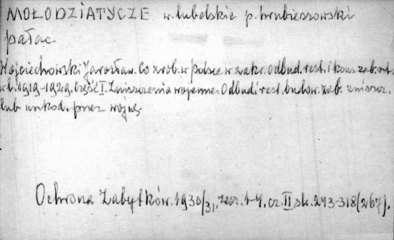 MOŁODZIATYCZE w. lubelskie p. hrubieszowski
pałac.
Wojciechowski Jarosław. Co zrob. w Polsce w zakr. odbud. rest. i kons. zab. art.
w l. 1919-1929. Część I. Zniszczenia wojenne. Odbud. i rest. budow. zab. zniszcz.
lub uszkod. przez wojnę.
Ochrona Zabytków. 1930/31, zesz. 1-4, cz. II, sk. 273-318 (267).